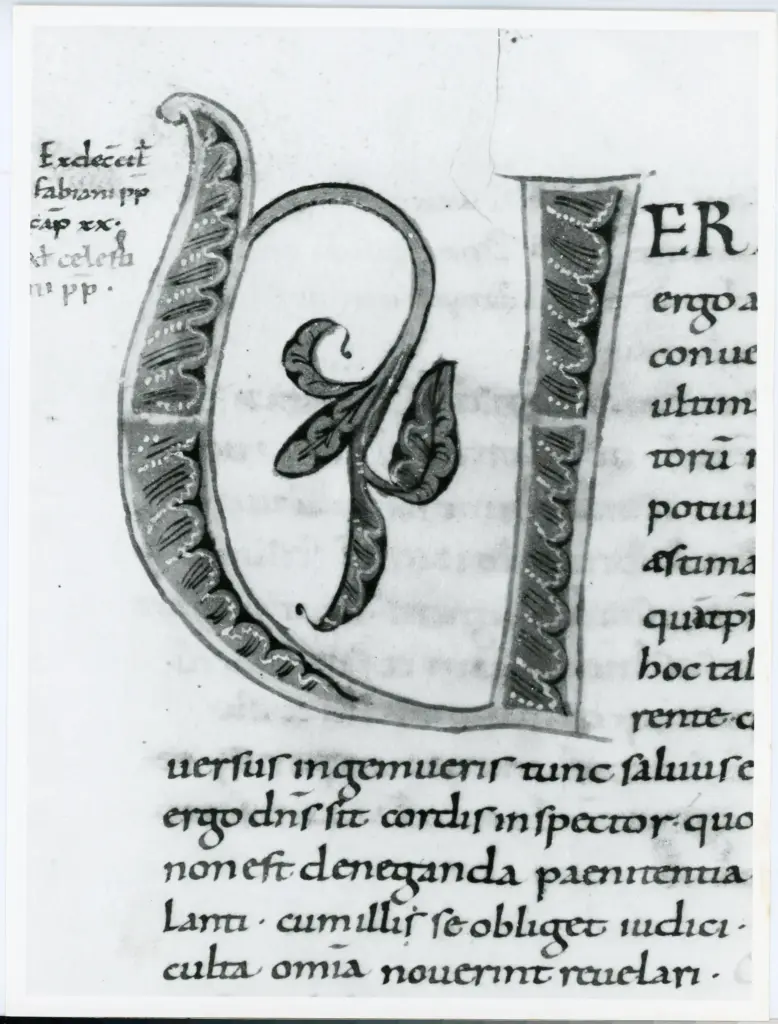 Ex decc̄tl̄
fabiani pp̄
cap̄ xx·
celesti
ni pp̄·
VER
ergo a
conue
ultim
torū
potiui
æstima
hoc tal
rente·c
uersus ingemueris tunc saluus e
ergo dn̄s sit cordis inspector· quo
non est deneganda paenitentia
lanti· cum illis se obliget iudici·
culta omīa nouerint reuelari·